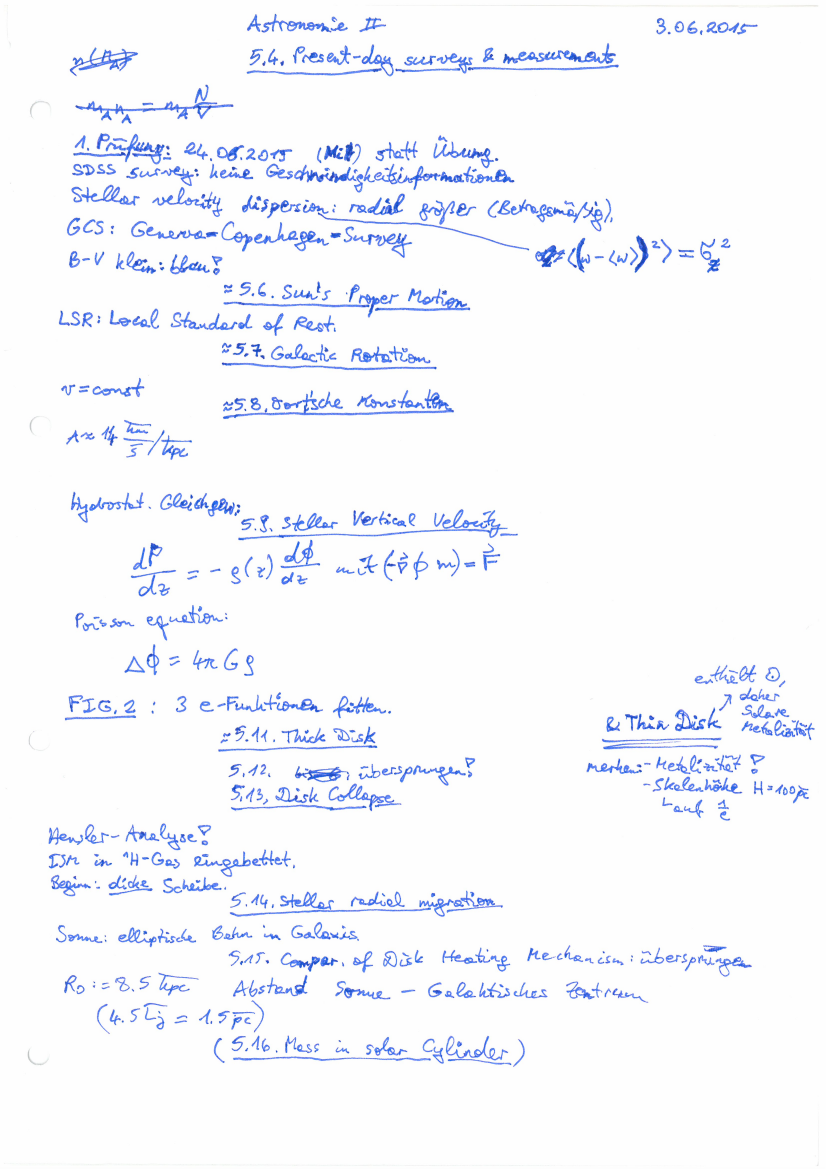 Astronomie II 3.06.2015
5.4. Present-day surveys & measurements
n(n_A)
m_A n_A = m_A N/V
1. Prüfung: 24.06.2015 (Mi) statt Übung.
SDSS survey: keine Geschwindigkeitsinformationen
Stellar velocity dispersion: radial größer (Betragsmäßig).
GCS: Geneva-Copenhagen-Survey
⟨(w-⟨w⟩)²⟩ = σ_z²
B-V klein: blau!
≈ 5.6. Sun's Proper Motion
LSR: Local Standard of Rest.
≈5.7. Galactic Rotation
v = const
≈5.8. Oort'sche Konstanten
A ≈ 14 km/s/kpc
Hydrostat. Gleichgew.:
5.9. Stellar Vertical Velocity
dP/dz = - ρ(z) dϕ/dz mit (-∇⃗ϕ m) = F⃗
Poisson equation:
Δϕ = 4πGρ
FIG. 2 : 3 e-Funktionen fitten.
≈5.11. Thick Disk & Thin Disk
enthält ☉,
daher
Solare
Metalizität
5.12. übersprungen!
merken: - Metalizität!
- Skalenhöhe H = 100pc
auf 1/e
5.13, Disk Collapse
Hensler-Analyse!
ISM in ¹H-Gas eingebettet.
Beginn: dicke Scheibe.
5.14. Stellar radial migration
Sonne: elliptische Bahn in Galaxis.
5.15. Compar. of Disk Heating Mechanism: übersprungen
R₀ := 8.5 kpc Abstand Sonne - Galaktisches Zentrum
(4.5 Lj = 1.5 pc)
(5.16. Mass in solar Cylinder)